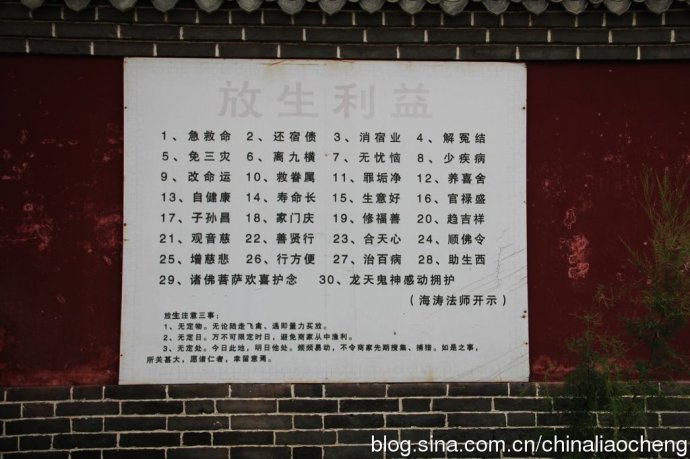 放生利益
1、急救命 2、还宿债 3、消宿业 4、解冤结
5、免三灾 6、离九横 7、无忧恼 8、少疾病
9、改命运 10、救眷属 11、罪垢净 12、养喜舍
13、自健康 14、寿命长 15、生意好 16、官禄盛
17、子孙昌 18、家门庆 19、修福善 20、趋吉祥
21、观音慈 22、善贤行 23、合天心 24、顺佛令
25、增慈悲 26、行方便 27、治百病 28、助生西
29、诸佛菩萨欢喜护念 30、龙天鬼神感动拥护
（海涛法师开示）
放生注意三事：
1、无定物。无论陆走飞禽、遇即量力买放。
2、无定日。万不可限定时日，避免商家从中渔利。
3、无定处。今日此地，明日他处。频频易动，不令商家先期搜集、捕猎。如是之事，
所关甚大，愿诸仁者，幸留意焉。
blog.sina.com.cn/chinaliaocheng